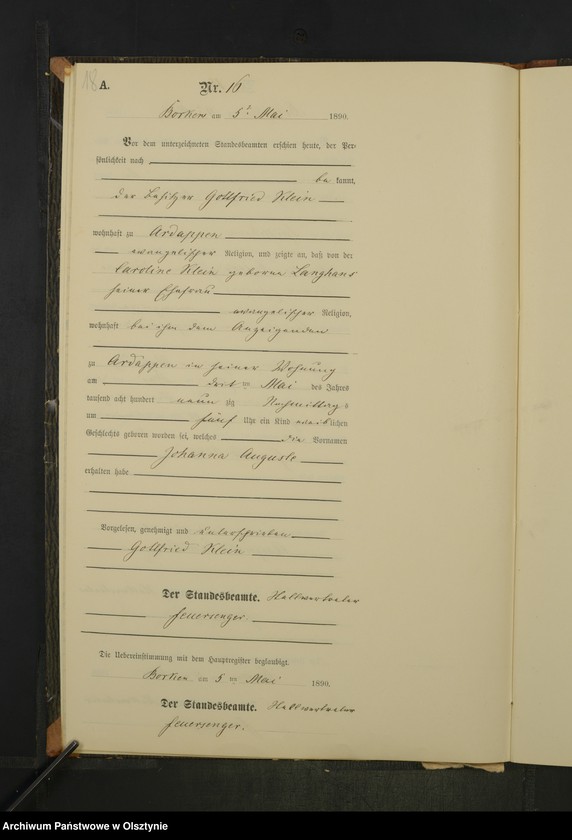 18
A.
Nr. 16
Borken am 5t Mai 1890.
Vor dem unterzeichneten Standesbeamten erschien heute, der Per-
sönlichkeit nach
be kannt,
der Besitzer Gottfried Klein
wohnhaft zu Ardappen
evangelischer Religion, und zeigte an, daß von der
Caroline Klein geborene Langhans
seiner Ehefrau
evangelischer Religion,
wohnhaft bei ihm dem Anzeigenden
zu Ardappen in seiner Wohnung
am drit ten Mai des Jahres
tausend acht hundert neun zig Nachmittags
um fünf Uhr ein Kind weiblichen
Geschlechts geboren worden sei, welches die Vornamen
Johanna Auguste
erhalten habe
Vorgelesen, genehmigt und unterschrieben
Gottfried Klein
Der Standesbeamte.
Feuersenger.
Die Uebereinstimmung mit dem Hauptregister beglaubigt.
Borken am 5 ten Mai 1890.
Der Standesbeamte.
Feuersenger.
Archiwum Państwowe w Olsztynie